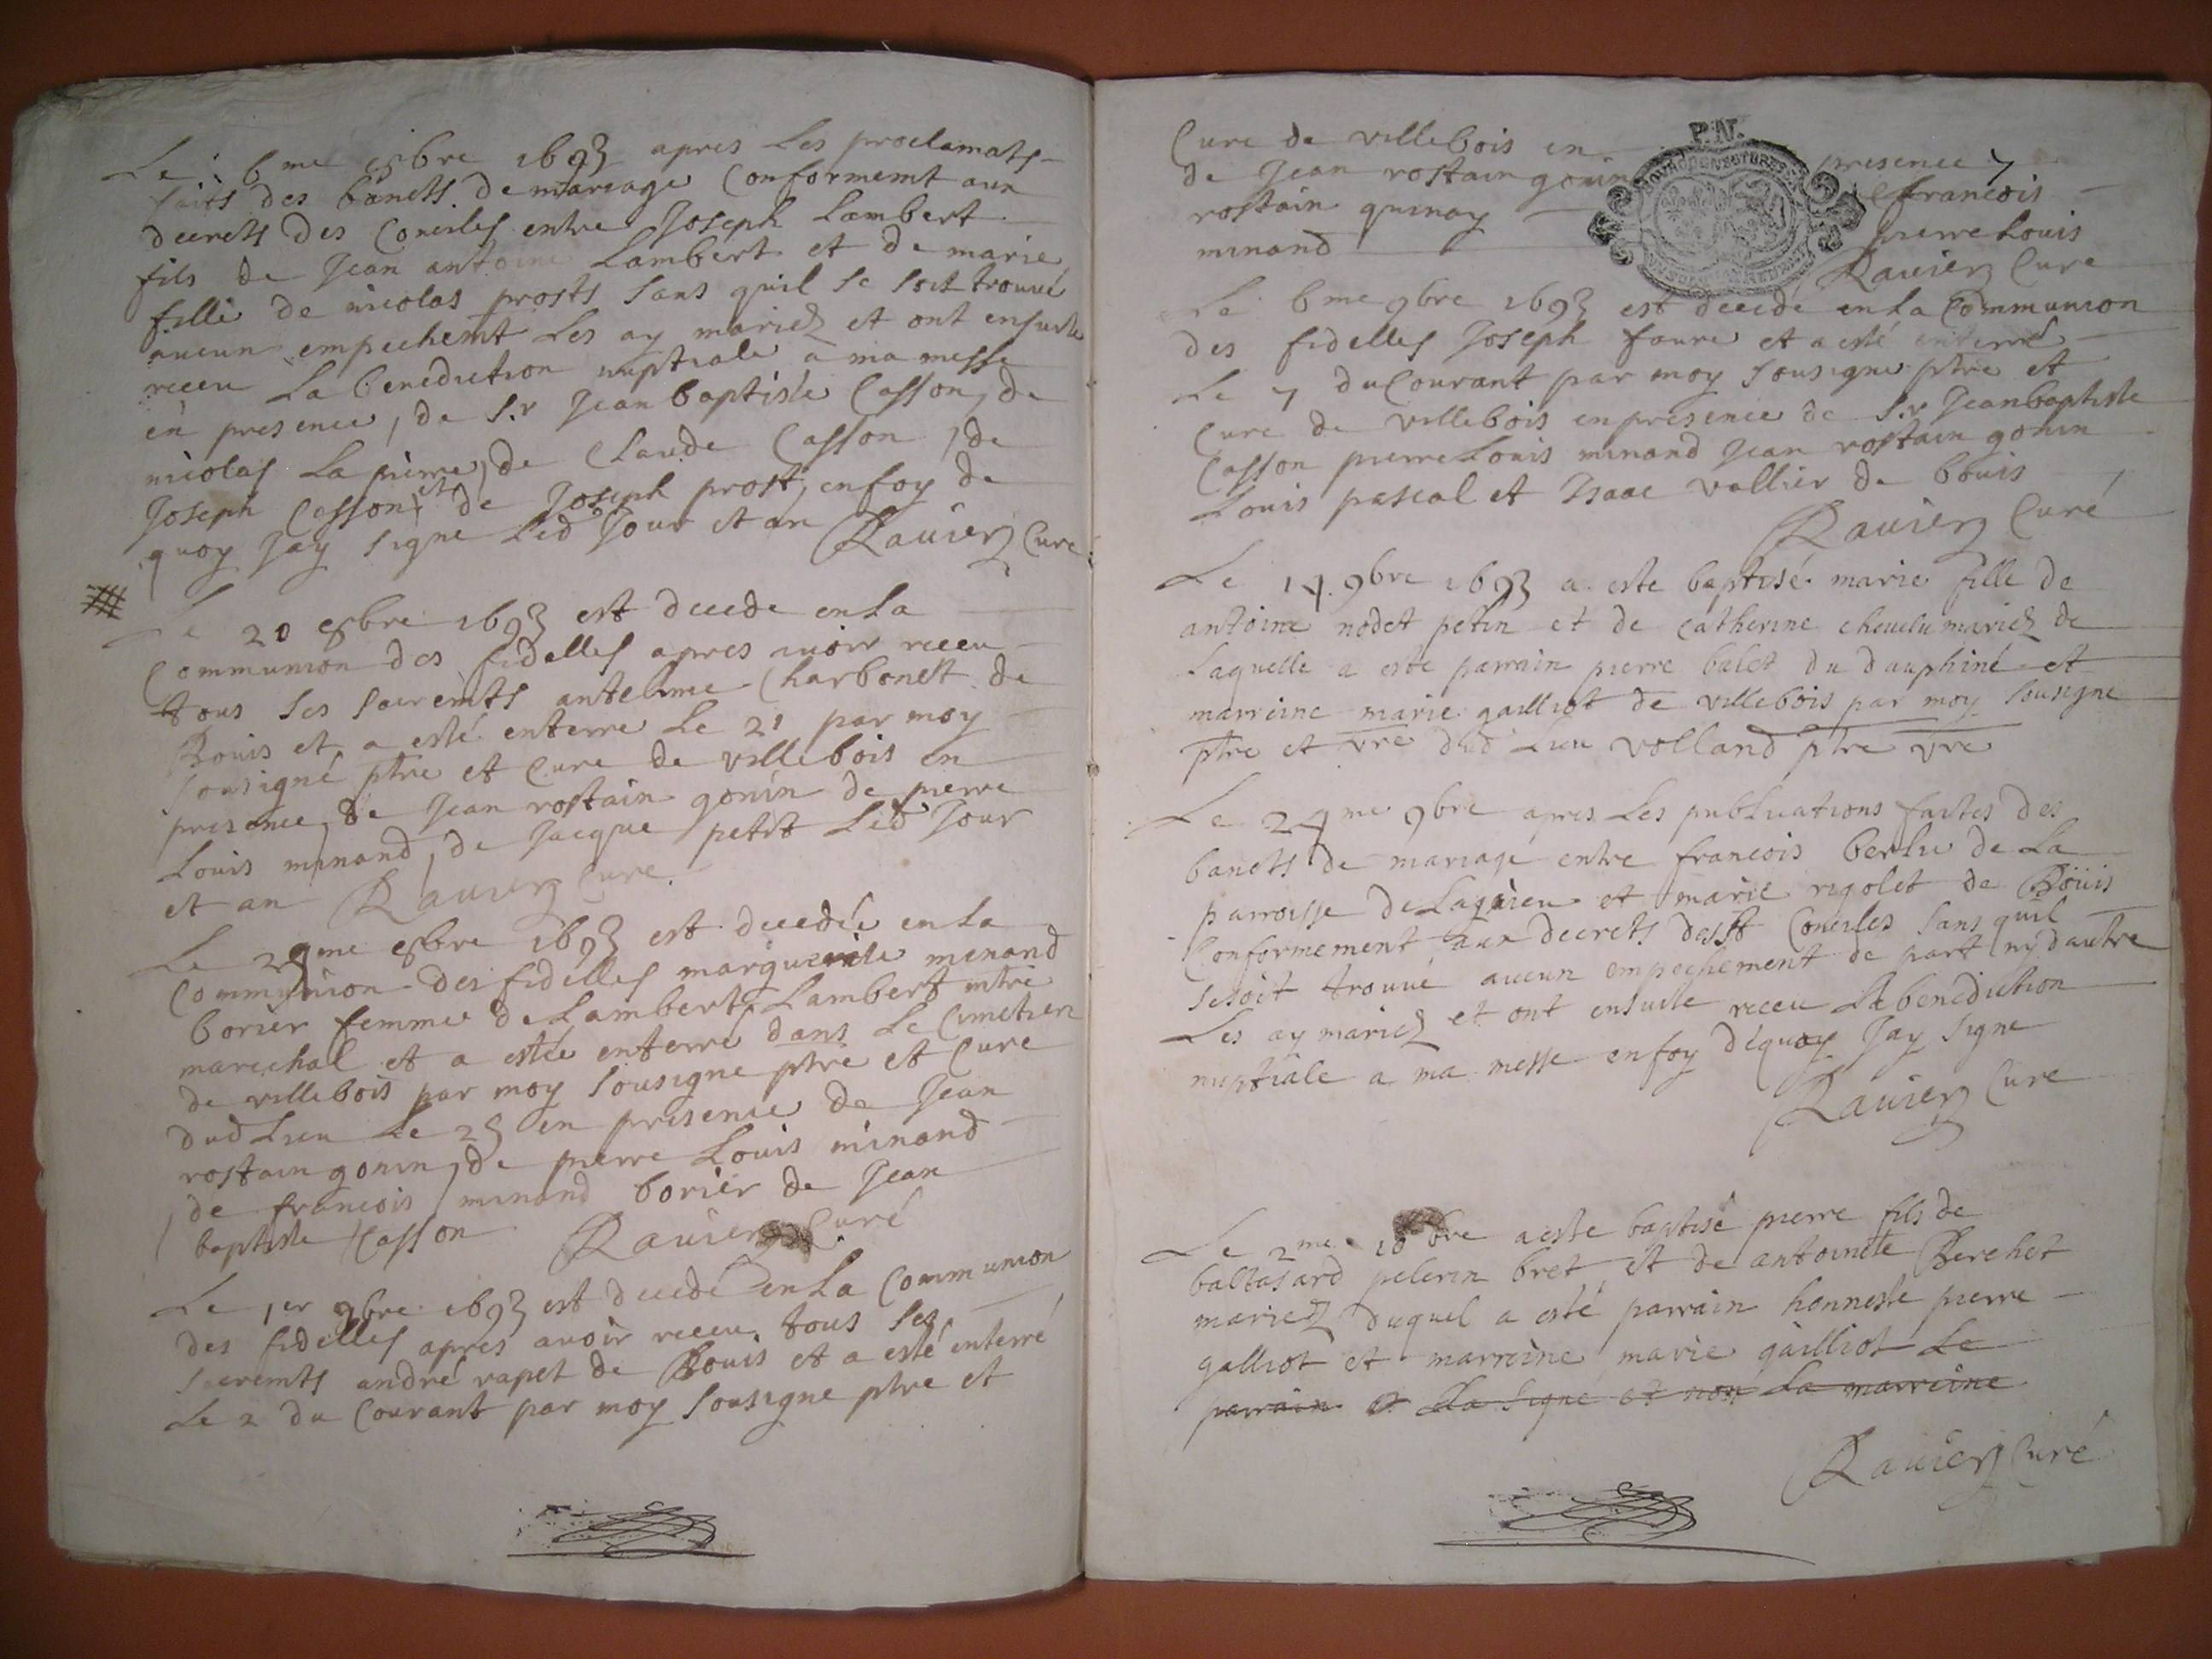 Le 6me 8bre 1693 apres Les proclamats
faits des bancts de mariage Conformemt aux
decrets des Conciles entre Joseph Lambert
fils de Jean antoine Lambert et de marie
fille de nicolas prosts sans quil se soit trouué
aucun empechemt Les ay mariez et ont ensuite
receu La benediction nuptiale a ma messe
en presence, de S.r Jean baptiste Casson, de
nicolas La pierre, de Claude Casson, de
Joseph Casson, et de Joseph prost, en foy de
quoy Jay signe Led Jour et an Rauier Cure
Le 20 8bre 1693 est decede en La
Communion des fidelles apres auoir receu
tous ses sacremts antelme Charbonet de
Bouis et a esté enterre Le 21 par moy
sousigné ptre et Cure de villebois en
presence, de Jean rostain gonin de pierre
Louis minand, de Jacque petit Led Jour
et an Rauier Cure
Le 24me 8bre 1693 est decedée en La
Communion des fidelles marguerite minand
borier femme de Lambert Lambert mtre
marechal et a estée enterré dans Le Cimetier
de villebois par moy sousigne ptre et Cure
dud Lieu Le 25 en presence de Jean
rostain gonin, de pierre Louis minand
, de francois minand borier de Jean
baptiste Casson Rauier Curé
Le 1er 9bre 1693 est decedé en La Communion
des fidelles apres auoir receu tous ses
sacremts andré rapet de Bouis et a esté enterré
Le 2 du Courant par moy sousigne ptre et
Cure de villebois en presence
de Jean rostain gonin francois
rostain quinay pierre Louis
minand Rauier Cure
P.N.
Le 6me 9bre 1693 est decedé en La Communion
des fidelles Joseph faure et a esté enterré
Le 7 du Courant par moy sousigne ptre et
Cure de villebois en presence de S.r Jean baptiste
Casson pierre Louis minand Jean rostain gonin
Louis pascal et Isaac vallier de bouis
Rauier Curé
Le 14. 9bre 1693 a este baptisé marie fille de
antoine nodet petin et de catherine cheuelu mariez de
Laquelle a este parrain pierre balet du dauphiné et
marreine marie gailliot de villebois par moy sousigne
ptre et vre dud Lieu volland ptre vre
Le 24me 9bre apres Les publications faites des
bancts de mariage entre francois berlie de La
parroisse de Lagnieu et marie rigolet de Boüis
Conformement aux decrets desst Conciles sans quil
se soit trouué aucun empechement de part ny dautre
Les ay mariez et ont ensuite receu La benediction
nuptiale a ma messe en foy dequoy Jay signe
Rauier Cure
Le 2me 10bre a este baptisé pierre fils de
baltasard pelerin bret, et de antoinete Berchet
mariez duquel a esté parrain honneste pierre
galliot et marreine marie gailliot Le
parrain a signé et non La marreine
Rauier Curé